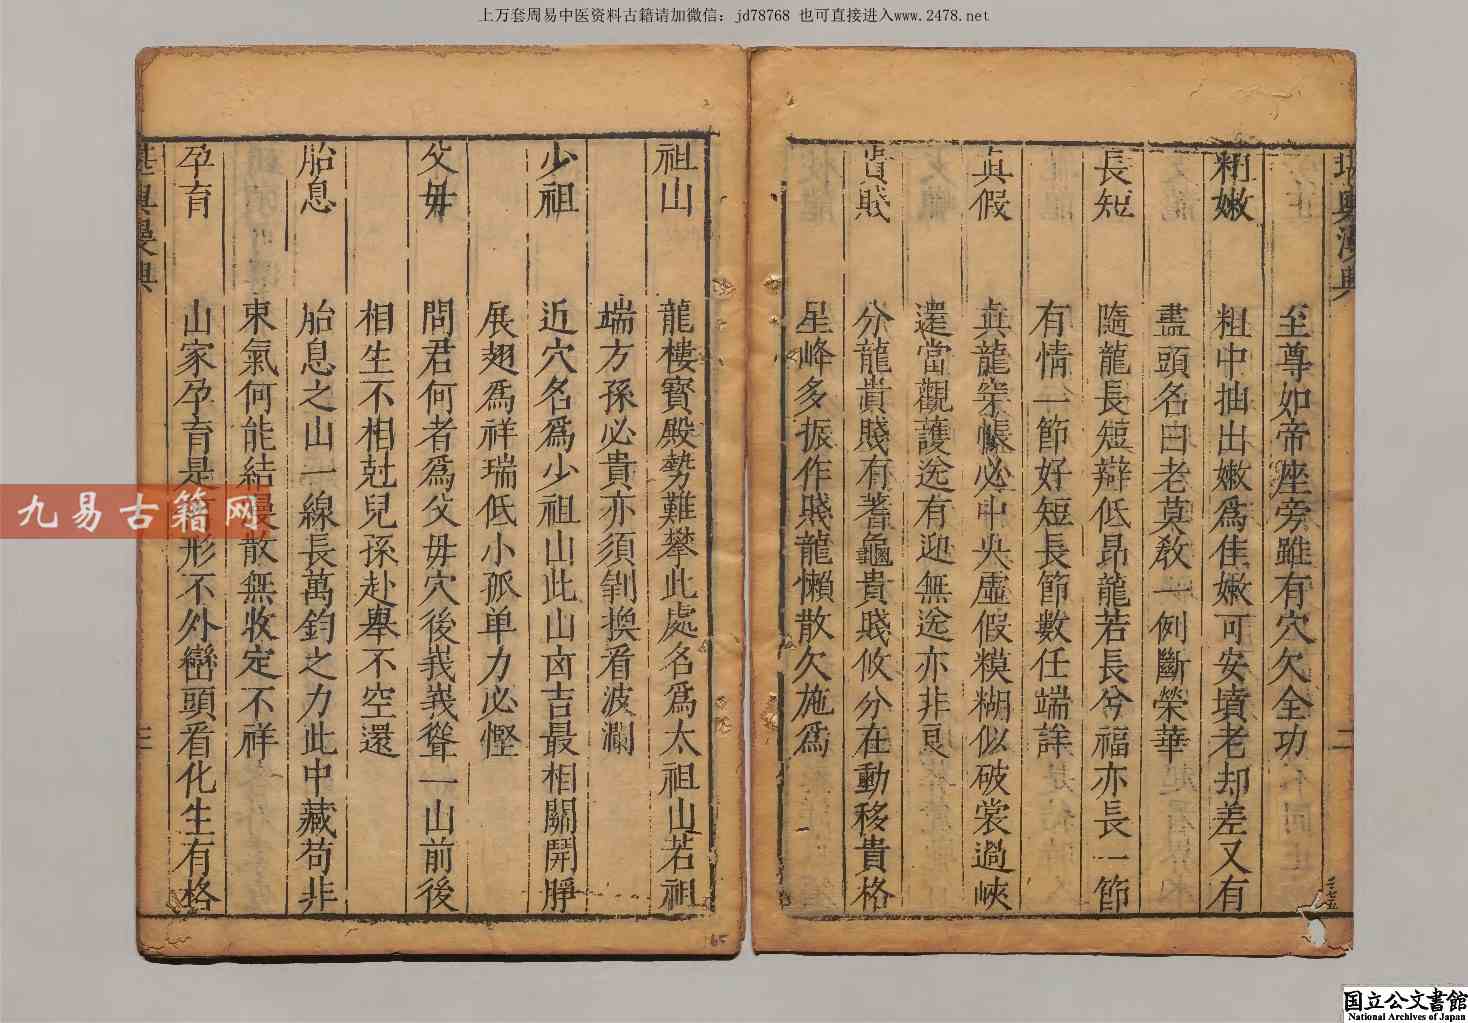 上万套周易中医资料古籍请加微信：jd78768 也可直接进入www.2478.net
堪輿漫興
二
至尊如帝座旁雖有穴欠全功
粗嫩
粗中抽出嫩為佳嫩可安墳老却差又有
盡頭名曰老莫教一例斷榮華
長短
隨龍長短辯低昂龍若長兮福亦長一節
有情一節好短長節數任端詳
真假
真龍穿帳必中央虛假糢糊似破裳過峽
還當觀護送有迎無送亦非良
貴賤
分龍貴賤有蓍龜貴賤攸分在動移貴格
星峰多振作賤龍懶散欠施為
祖山
龍樓寶殿勢難攀此處名為太祖山若祖
端方孫必貴亦須剝換看波瀾
少祖
近穴名為少祖山此山凶吉最相關開睜
展翅為祥瑞低小孤单力必慳
父毋
問君何者為父毋穴後峩峩聳一山前後
相生不相尅兒孫赴舉不空還
胎息
胎息之山一線長萬鈞之力此中藏苟非
東氣何能結散無收定不祥
孕育
山家孕育是形不外巒頭看化生有格
九易古籍网
国立公文書館
National Archives of Japan